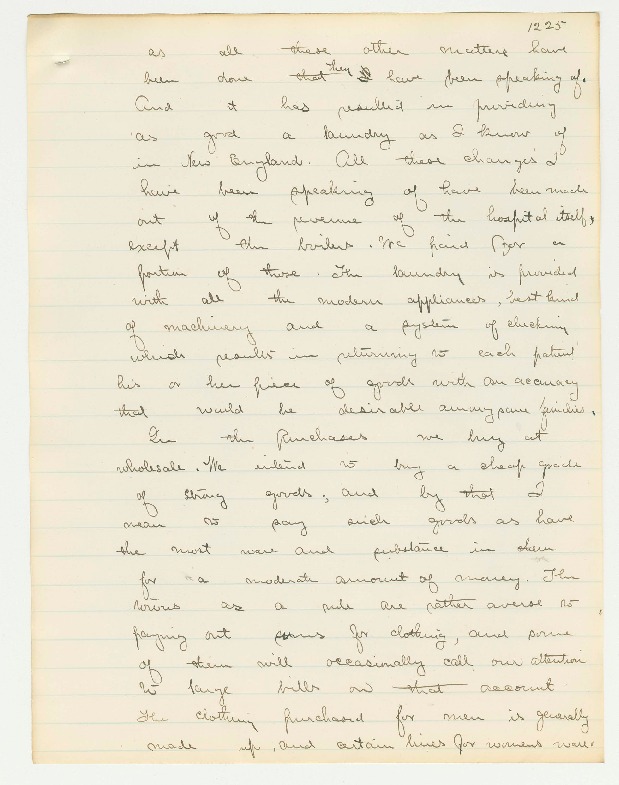 1225
as all these other matters have
been done that they I have been speaking of.
And it has resulted in providing
as good a laundry as I know of
in New England. All these changes I
have been speaking of have been made
out of the revenue of the hospital itself,
except the boilers. We paid for a
portion of those. The laundry is provided
with all the modern appliances, best kind
of machinery and a system of checking
which results in returning to each patient
his or her piece of goods with an accuracy
that would be desirable among some families.
In the purchases we buy at
wholesale. We intend to buy a cheap grade
of strong goods; and by that I
mean to say such goods as have
the most ware and substance in them
for a moderate amount of money. The
towns as a rule are rather averse to
paying out sums for clothing, and some
of them will occasionally call our attention
to large bills on that account
The clothing purchased for men is generally
made up, and certain lines for womens ware.